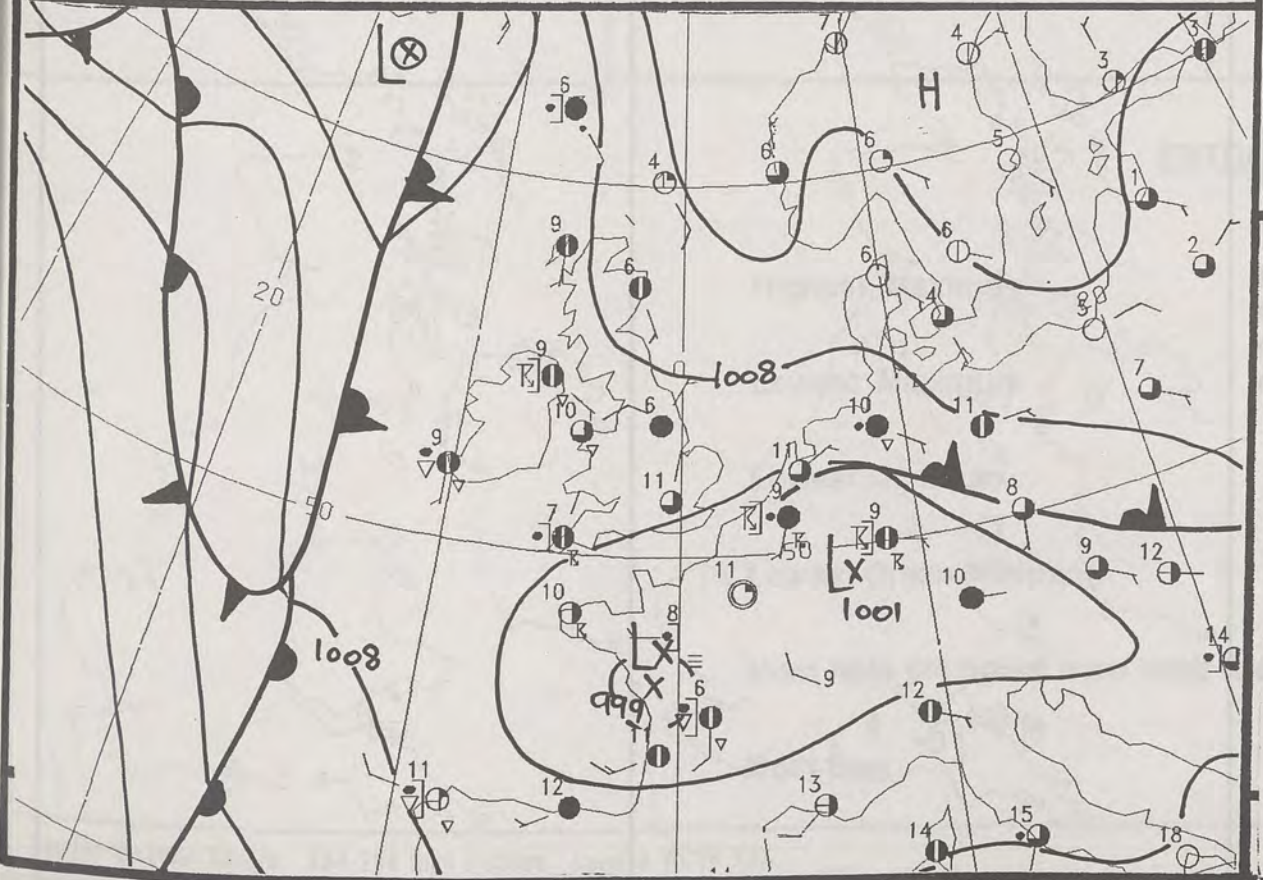 L
7
4
3
3
H
6
4
6
6
5
1
9
6
6
2
20
6
4
8
5
9
0
1008
7
10
6
10
11
9
11
11
9
8
50
7
9
50
L
9
12
11
10
1001
10
8
L
14
1008
9
999
6
12
11
11
12
13
14
15
18